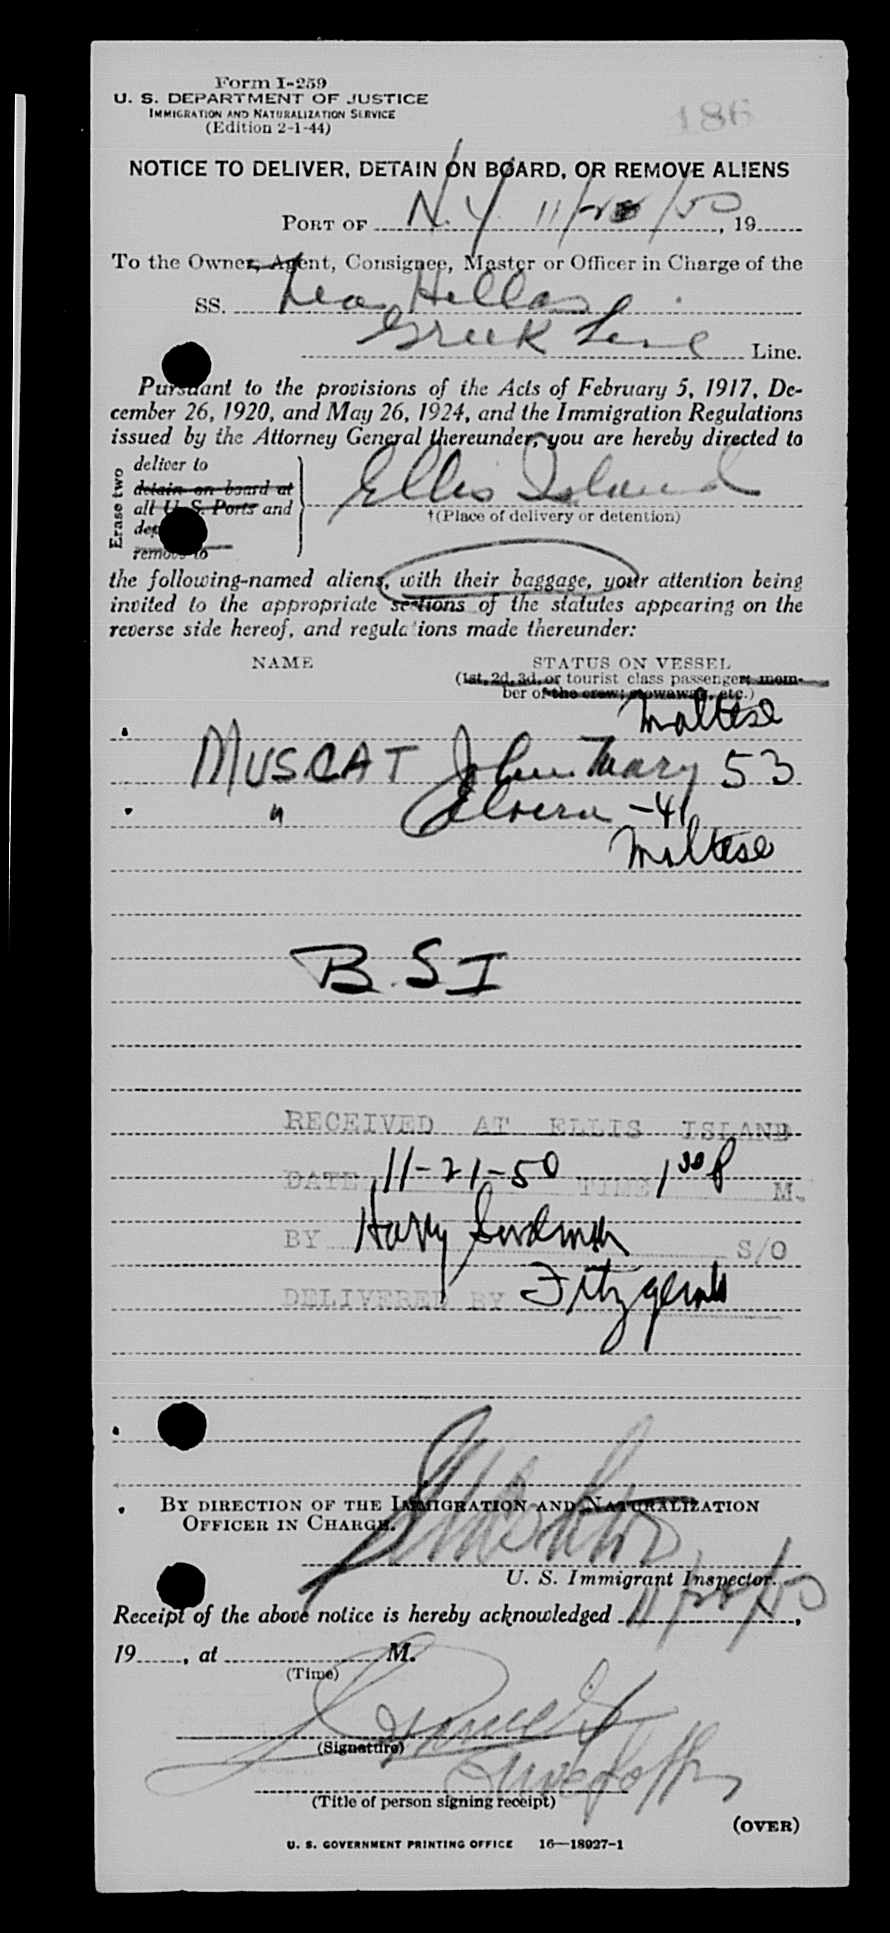 Form I-259
U. S. DEPARTMENT OF JUSTICE
IMMIGRATION AND NATURALIZATION SERVICE
(Edition 2-1-44)
186
NOTICE TO DELIVER, DETAIN ON BOARD, OR REMOVE ALIENS
PORT OF N.Y. 11/ /50, 19
To the Owner, Agent, Consignee, Master or Officer in Charge of the
SS. Nea Hellas
Greek Line Line.
Pursuant to the provisions of the Acts of February 5, 1917, De-
cember 26, 1920, and May 26, 1924, and the Immigration Regulations
issued by the Attorney General thereunder, you are hereby directed to
Erase two
deliver to
detain on board at
all U. S. Ports and
dep
remove to
Ellis Island
†(Place of delivery or detention)
the following-named aliens, with their baggage, your attention being
invited to the appropriate sections of the statutes appearing on the
reverse side hereof, and regulations made thereunder:
NAME STATUS ON VESSEL
(1st, 2d, 3d, or tourist class passenger, mem-
ber of the crew, stowaway, etc.)
Maltese
MUSCAT John Mary 53
" Elvera - 41
Maltese
B.S I
RECEIVED AT ELLIS ISLAND
DATE 11-21-50 TIME 1 00 P M.
BY Harry S/O
DELIVERED BY Fitzgerald
BY DIRECTION OF THE IMMIGRATION AND NATURALIZATION
OFFICER IN CHARGE.
U. S. Immigrant Inspector.
Receipt of the above notice is hereby acknowledged 11/ /50,
19, at M.
(Time)
(Signature)
(Title of person signing receipt)
(OVER)
U. S. GOVERNMENT PRINTING OFFICE 16—18927-1